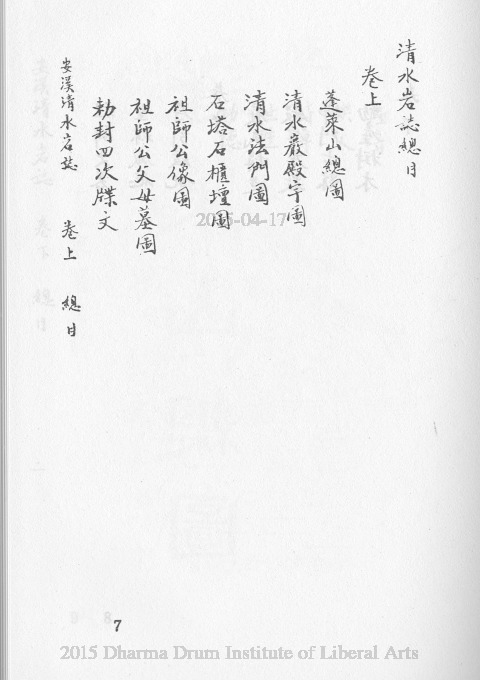 清水岩誌總目
卷上
蓬萊山總圖
清水巖殿宇圖
清水法門圖
石塔石櫃壇圖
祖師公像圖
祖師公父母墓圖
勅封四次牒文
安溪清水岩誌 卷上 總目
2015-04-17
7
2015 Dharma Drum Institute of Liberal Arts